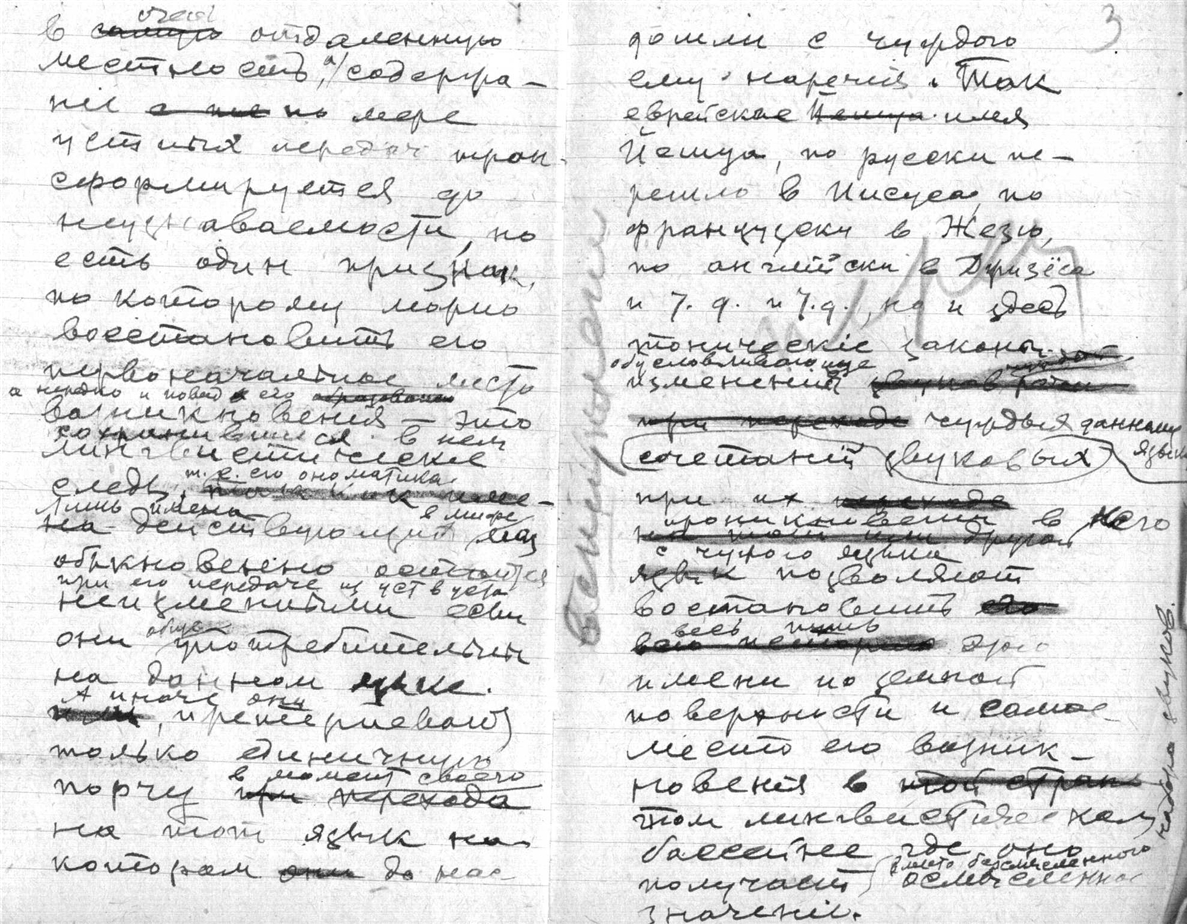 очень
в самую отдаленную
местность, а содержа-
ніе а же по мере
устных передач тран-
сформируется до
неузнаваемости, но
есть один признак,
по которому можно
восстановить его
первоначальное место
а нужно и повод его
возникновенія — это
сохранившиеся в нем
лингвистические
следы, т. е. его ономатика
Лишь имена
на действующих лиц в мифе
обыкновенно остаются
при его передаче из уст в уста
неизменными если
они употребительны
на данном языке.
А иначе они
или, претерпевают
только единичную
в момент своего
порчу при перехода
на тот язык на
котором они до нас
3
дошли с чуждого
ему наречія. Так
еврейское Йешуа имя
Йешуа, по русски пе-
решло в Иисуса, по
французски в Жезю,
по английски в Джизёса
и т. д. и т. д., но и здесь
тоническіе законы
обусловливающие
изменений звуков
при переходе чуждых данному
языку
сочетаний звуковых
при их переходе
проникновении в него
на тот или другой
с чужого языка
язык позволяют
востановить его
весь путь
всю историю этого
имени по земной
поверхности и самое
место его возник-
новенія в той стран
том лингвистическом
бассейне где оно
вместо безсмысленного
получает осмысленное
значеніе.
набора звуков.